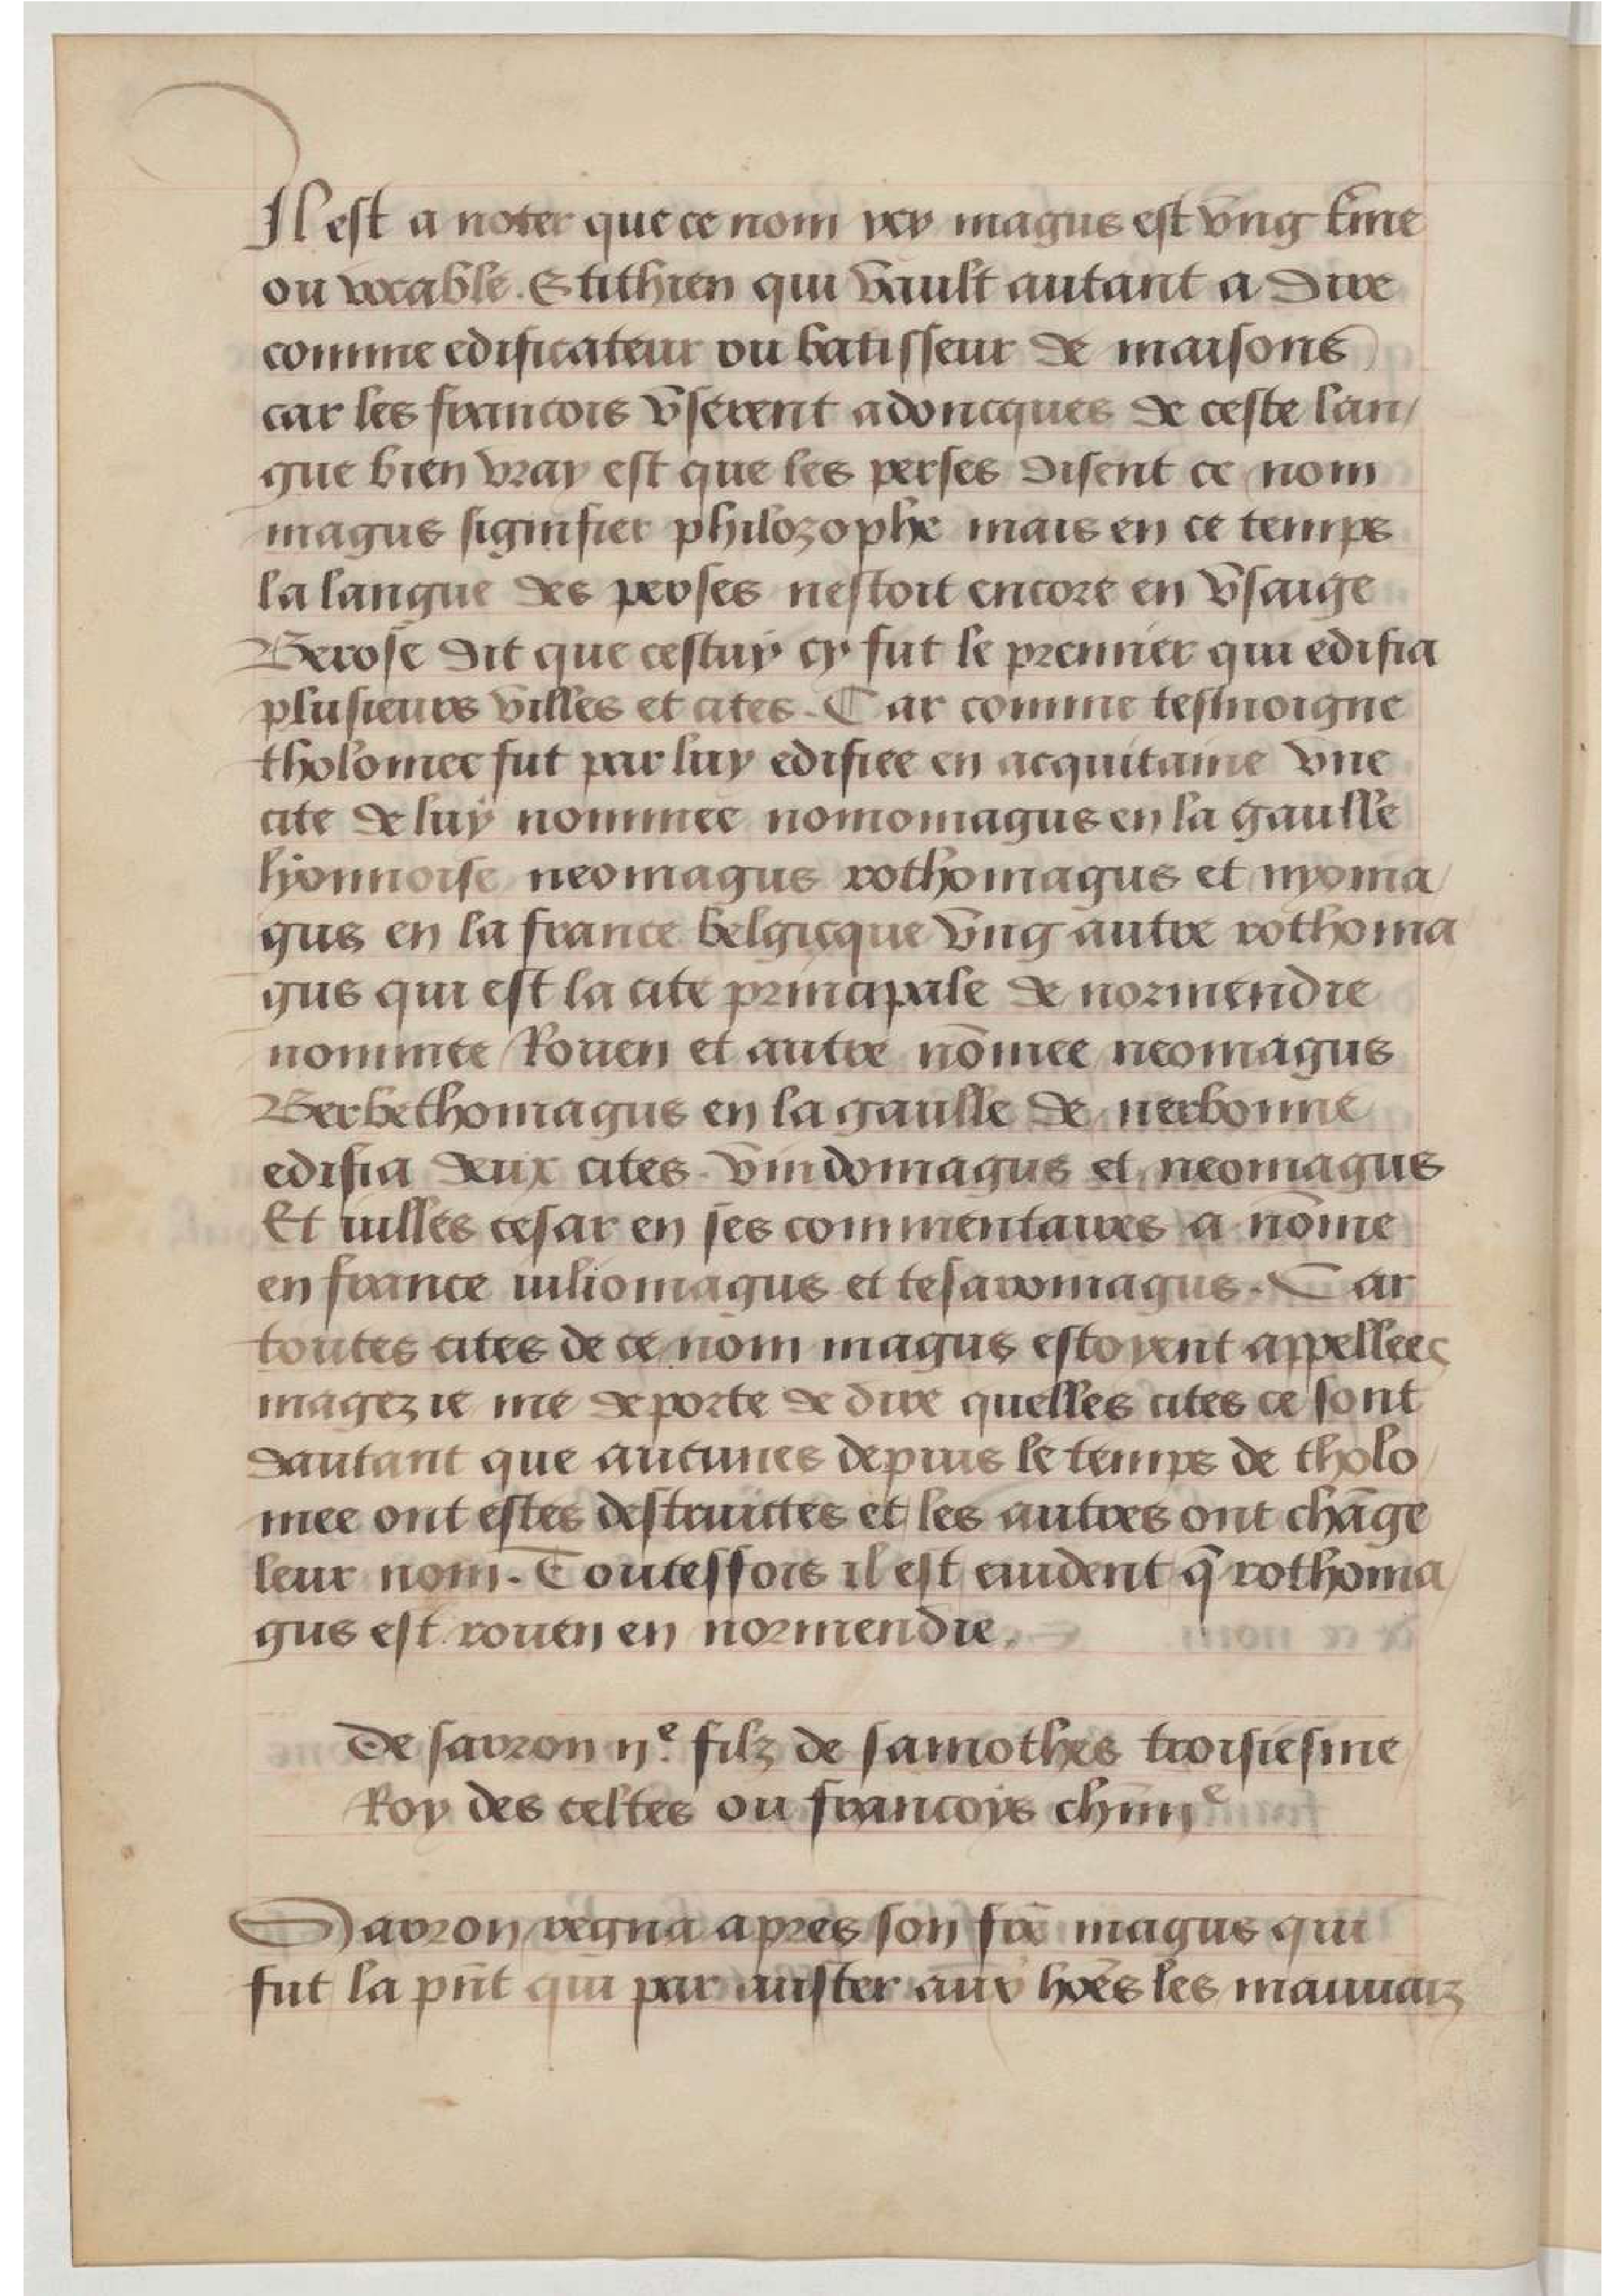 Il est a noter que ce nom rey magus est vng t̃me
ou vocable. Stithien qui vault autant a dire
comme edificateur ou batisseur de maisons
car les francois vserent adoncques de ceste lan/
gue bien vray est que les perses disent ce nom
magus signifier philozophe mais en ce temps
la langue des perses nestoit encore en vsaige
Berose dit que cestuy cy fut le premier qui edifia
plusieurs villes et cites. Car comme tesmoigne
tholomee fut par luy edifiee en acquitaine vne
cite de luy nommee nomomagus en la gaulle
lyonnoise neomagus rothomagus et nyoma/
gus en la france belgicque vng autre rothoma
gus qui est la cite principale de normendie
nommee Rouen et autre nõmee neomagus
Berbethomagus en la gaulle de nerbonne
edifia deux cites. vindomagus et neomagus
Et iulles cesar en ses commentaires a nõme
en france iuliomagus et tesaromagus. Car
toutes cites de ce nom magus estoyent appellees
magez ie me deporte de dire quelles cites ce sont
dautant que aucunes depuis le temps de tholo/
mee ont estes destruictes et les autres ont chãge
leur nom. Toutesfois il est euident q̃ rothoma/
gus est rouen en normendie.
De sarron ijᵉ. filz de samothes troisiesme
Roy des celtes ou francoys ch iiijᵉ
Sarron regna apres son fr̃e magus qui
fut la pñt qui par iuster aux hões les mauuaiz